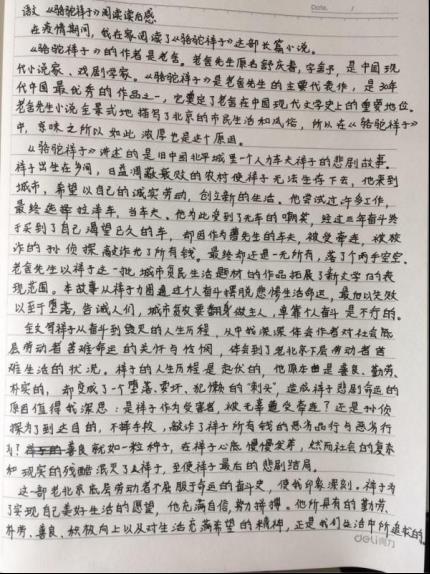 Date. /
激《骆驼祥子》阅读读后感
在疫情期间，我在家阅读了《骆驼祥子》这部长篇小说。
《骆驼祥子》的作者是老舍。老舍先生原名舒庆春，字舍予，是中国现
代小说家、戏剧学家。《骆驼祥子》是老舍先生的主要代表作，是30年
代中国最优秀的作品之一，它奠定了老舍在中国现代文学史上的重要地位。
老舍先生小说全景式地描写了北京的市民生活和风俗，所以在《骆驼祥子》
中，京味之所以如此浓厚也是这个原因。
《骆驼祥子》讲述的是旧中国北平城里一个人力车夫祥子的悲剧故事。
祥子出生在乡间，日益凋敝衰败的农村使祥子无法生存下去，他来到
城市，希望以自己的诚实劳动，创立新的生活。他尝试过许多工作，
最终选择拉洋车，当车夫。他为此受到了无车的嘲笑，经过三年奋斗终
于买到了自己渴望已久的车，却因作为曹先生的车夫，被受牵连，被敲
诈的孙侦探敲诈光了所有钱。最终却还是一无所有，落了个两手空空。
老舍先生以祥子这一批城市贫民生活题材的作品拓展了新文学的表
现范围。本故事从祥子力图通过个人奋斗摆脱悲惨生活命运，最后以失败
以至于堕落，告诫人们，城市贫农要翻身做主人，单靠个人奋斗是不行的。
全文写祥子从奋斗到毁灭的人生历程，从中我深深体会作者对社会底
层劳动者苦难命运的关怀与怜悯，体会到了老北京下层劳动者苦
难生活的状况。祥子的人生历程是起伏的，他原本由是善良、勤劳、
朴实的，却变成了一个堕落、变坏、犯懒的“刺头”，造成祥子悲剧命运的
原因值得我深思：是祥子作为受害者，被无辜遭受牵连？还是孙侦
探为了到达目的，不择手段，敲诈了祥子所有钱的恶劣品行与恶劣行
为？善良就如一粒种子，在祥子心底慢慢发芽，然而社会的复杂
和现实的残酷泯灭了祥子，至使祥子最后的悲剧结局。
这一部老北京底层劳动者不屈服于命运的奋斗史，使我印象深刻。祥子为
了实现自己美好生活的愿望，他充满自信，努力拼搏。他所具有的勤劳、
朴劳、善良、积极向上以及对生活充满希望的精神，正是我们生活中所追求的。
deli得力